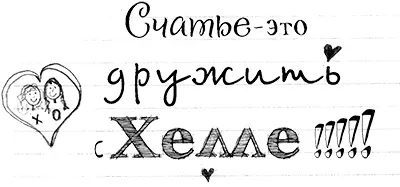 Счастье-это
дружить
х о
с Хелле !!!!!